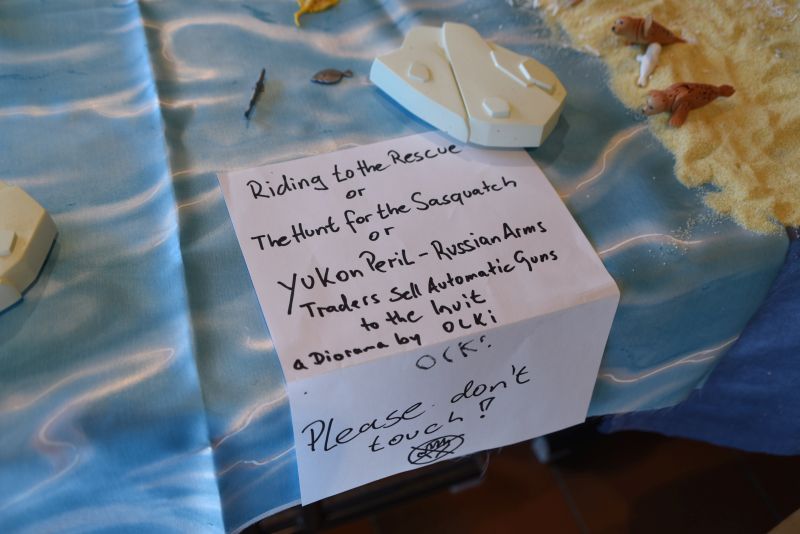 Riding to the Rescue
or
The Hunt for the Sasquatch
or
Yukon Peril - Russian Arms
Traders Sell Automatic Guns
to the Inuit
a Diorama by OLKi
OLKi
Please don't
touch!